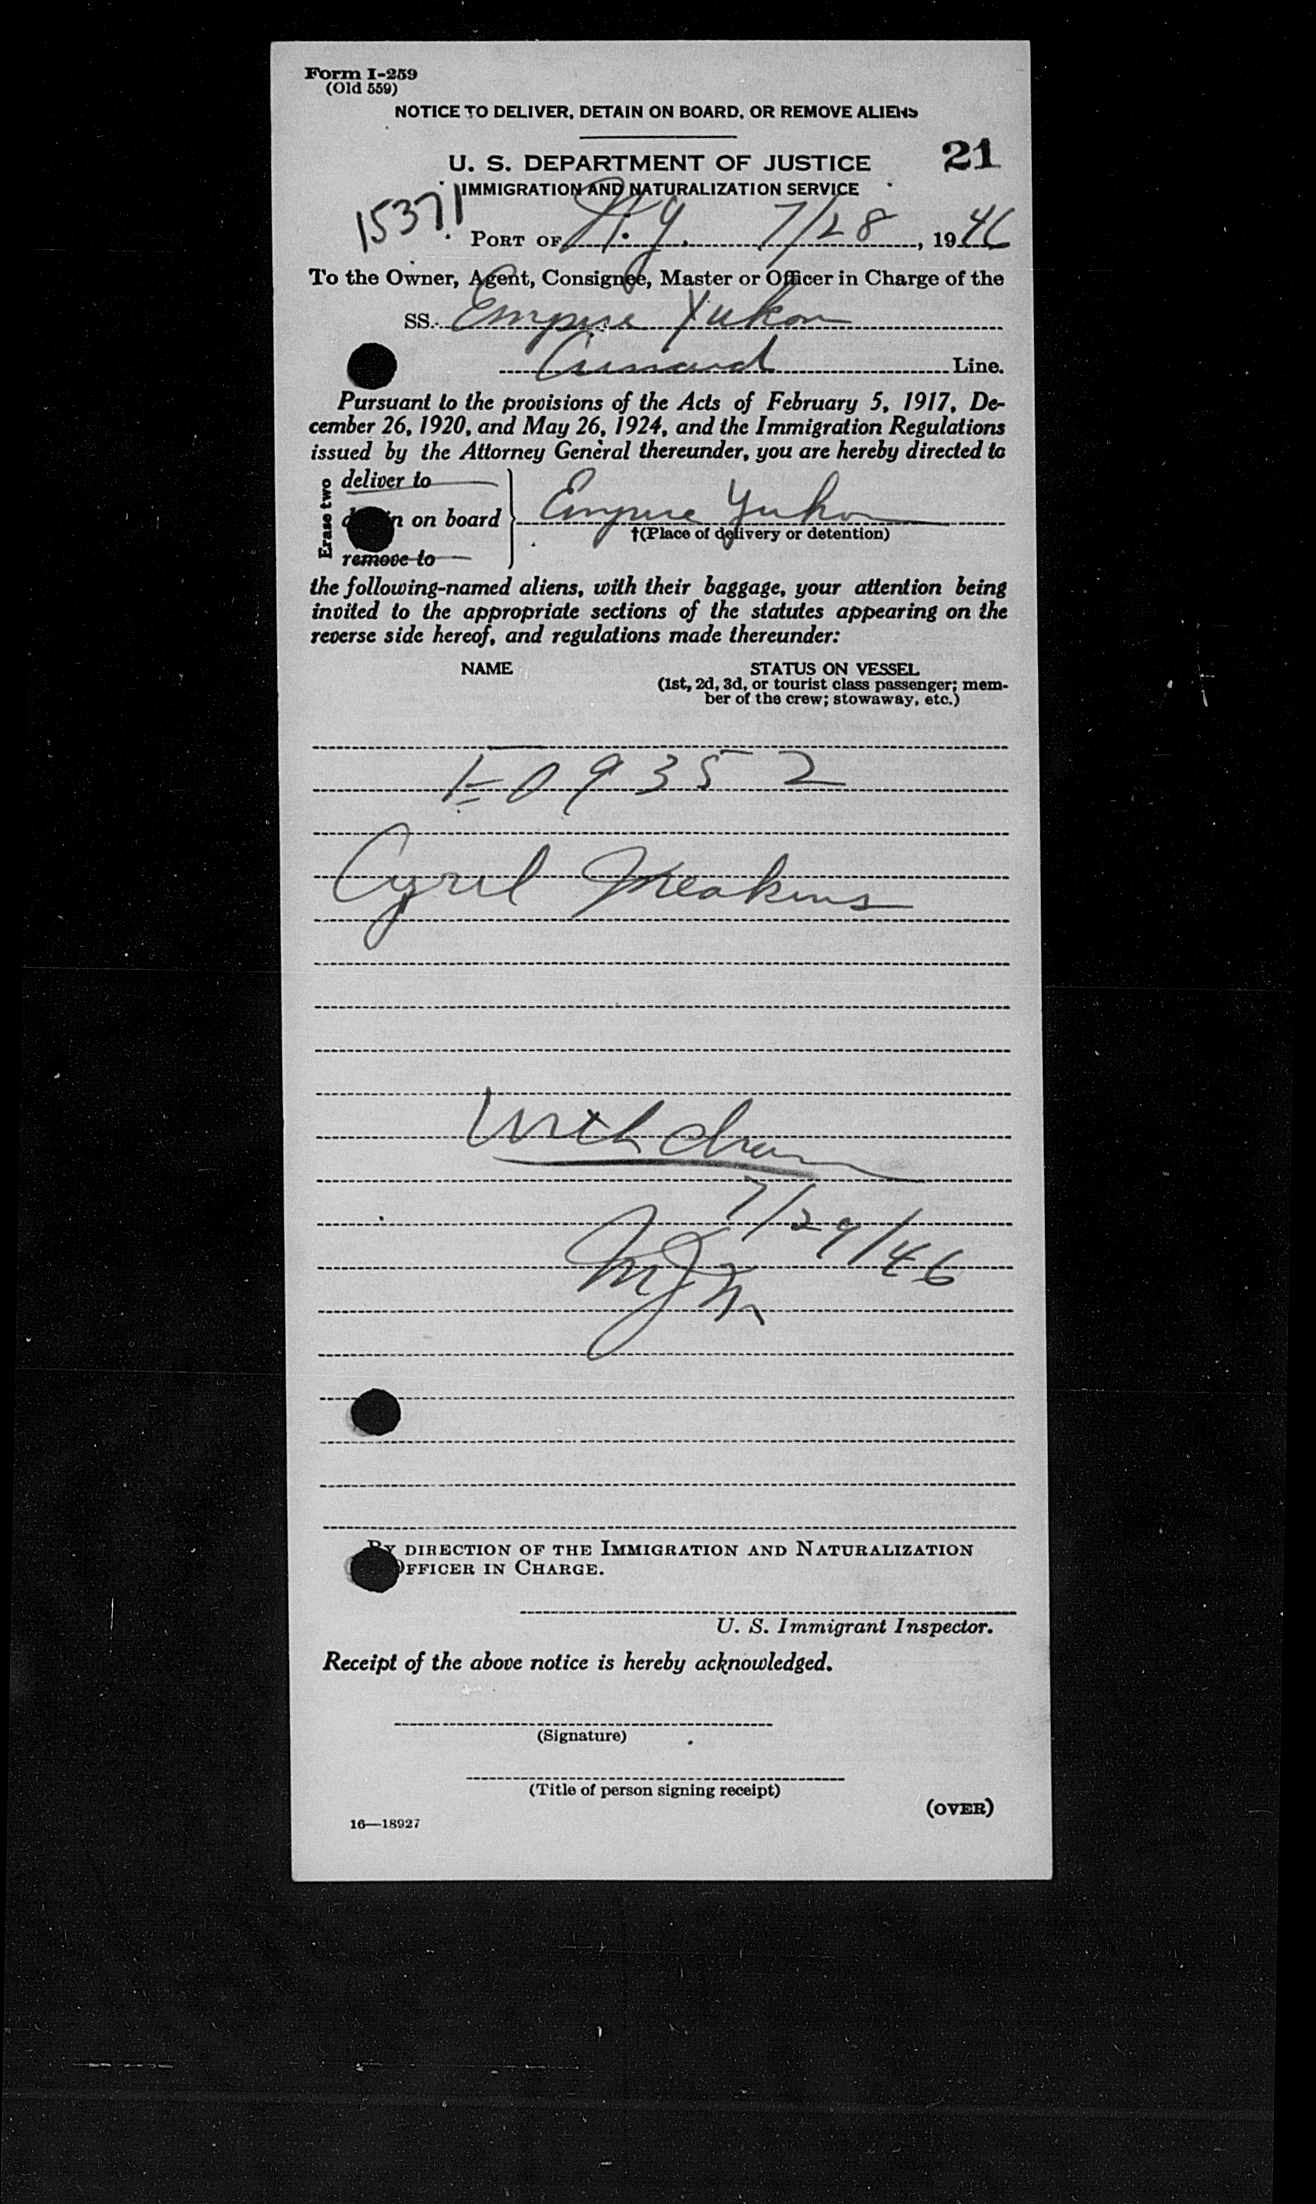 Form I-259
(Old 559)
NOTICE TO DELIVER, DETAIN ON BOARD, OR REMOVE ALIENS
U. S. DEPARTMENT OF JUSTICE
21
IMMIGRATION AND NATURALIZATION SERVICE
15371
PORT OF N.Y. 7/28, 1946
To the Owner, Agent, Consignee, Master or Officer in Charge of the
SS. Empire Yukon
Cunard Line.
Pursuant to the provisions of the Acts of February 5, 1917, De-
cember 26, 1920, and May 26, 1924, and the Immigration Regulations
issued by the Attorney General thereunder, you are hereby directed to
Erase two
deliver to
n on board
Empire Yukon
†(Place of delivery or detention)
remove to
the following-named aliens, with their baggage, your attention being
invited to the appropriate sections of the statutes appearing on the
reverse side hereof, and regulations made thereunder:
NAME
STATUS ON VESSEL
(1st, 2d, 3d, or tourist class passenger; mem-
ber of the crew; stowaway, etc.)
09352
Cyril Meakins
Withdrawn
7/29/46
MJM
BY DIRECTION OF THE IMMIGRATION AND NATURALIZATION
OFFICER IN CHARGE.
U. S. Immigrant Inspector.
Receipt of the above notice is hereby acknowledged.
(Signature)
(Title of person signing receipt)
(OVER)
16—18927